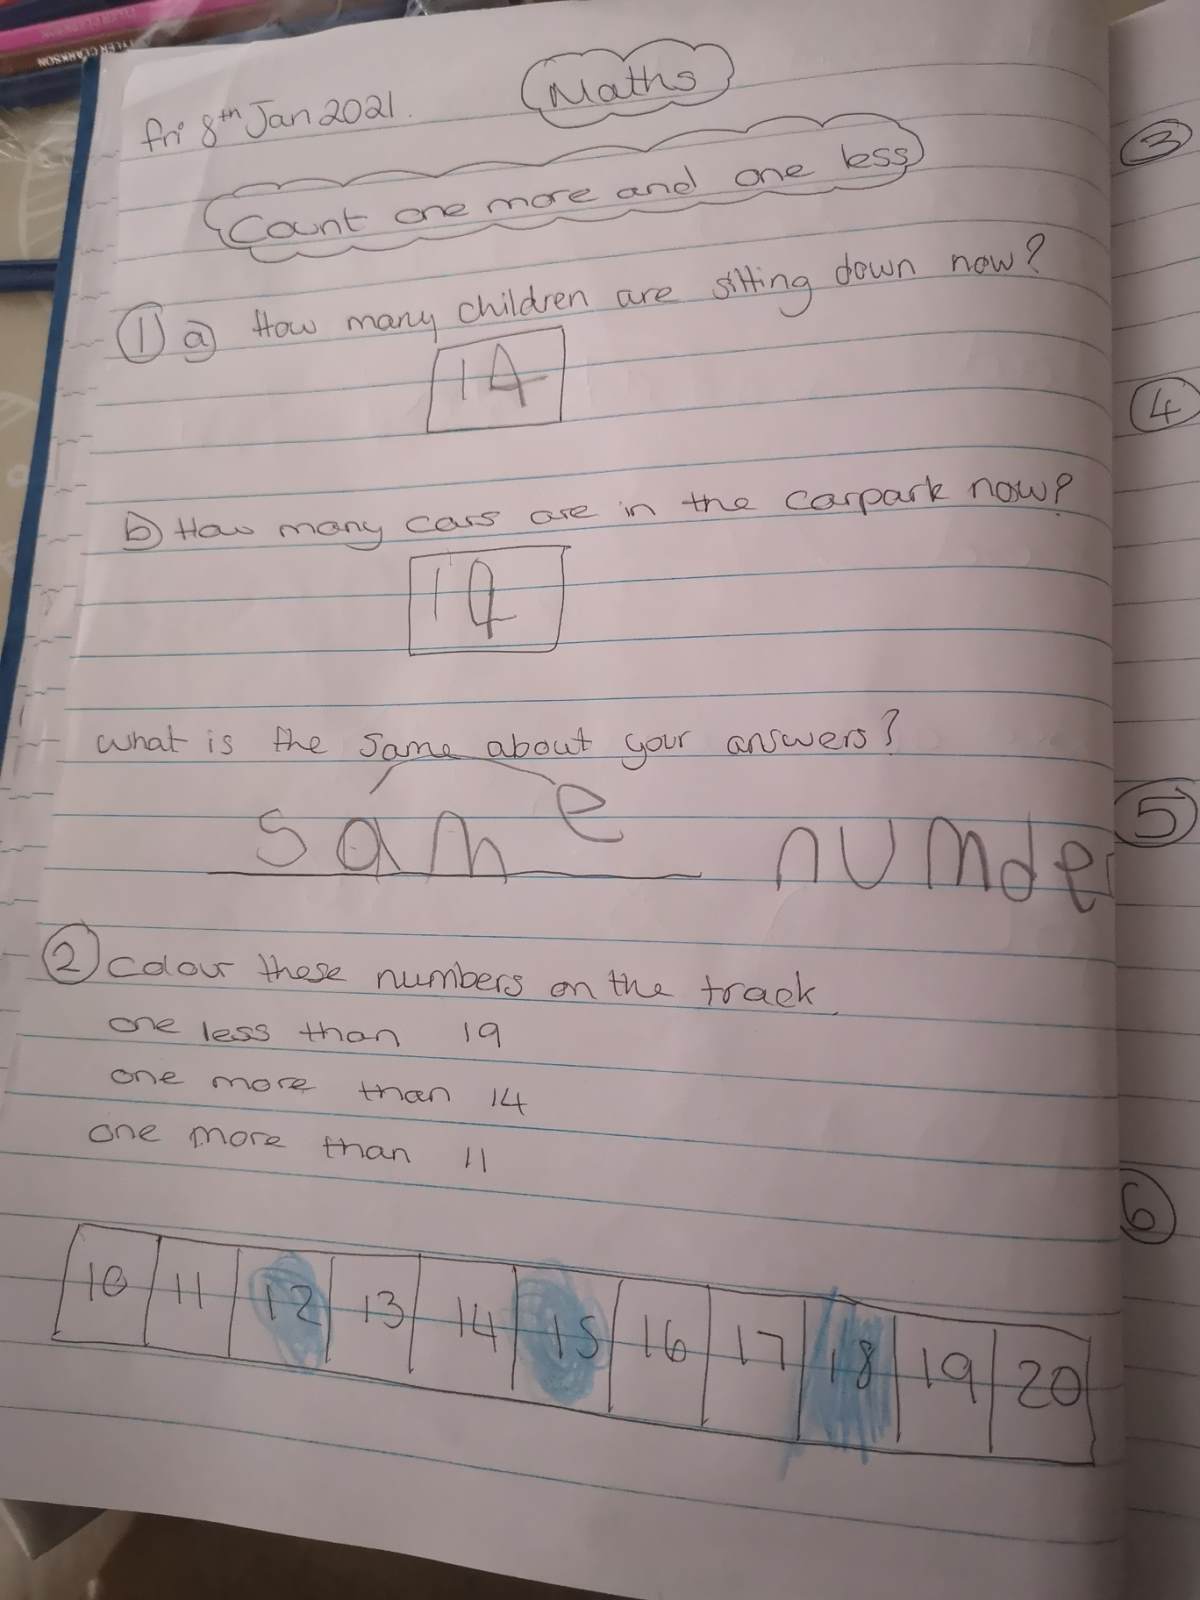 TYLER CLARKSON
Maths
Fri 8th Jan 2021.
Count one more and one less
1 a How many children are sitting down now?
14
b) How many cars are in the carpark now?
14
What is the same about your answers?
same numde
2 Colour these numbers on the track.
one less than 19
one more than 14
one more than 11
10 11 12 13 14 15 16 17 18 19 20
3
4
5
6